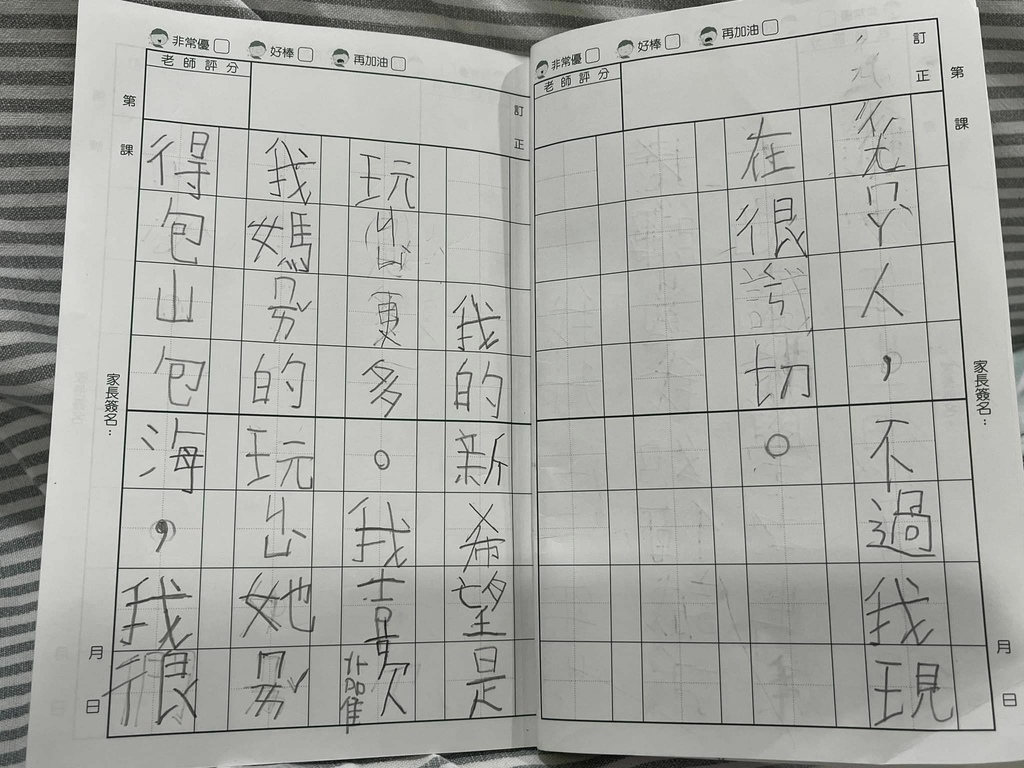 非常優 好棒 再加油
老師評分
訂正
第 課
人，不過我現
在很切。
家長簽名：
月 日
非常優 好棒 再加油
老師評分
訂正
第 課
我的新希望是
玩出更多。我喜歡
我媽的玩出她
得包山包海，我很
家長簽名：
月 日